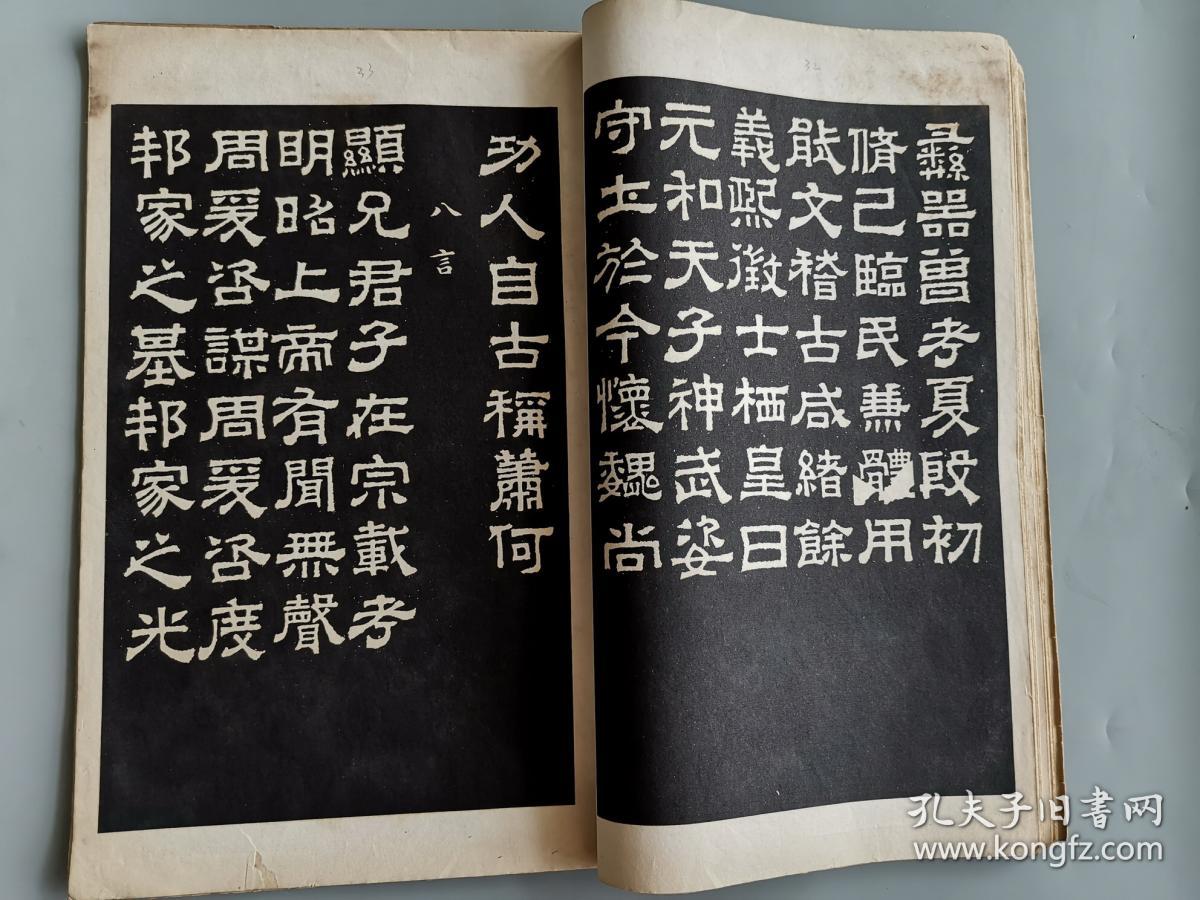 32
彝器曾考夏殷初
脩己臨民兼體用
文稽古咸緒餘
義熙徵士栖皇日
元和天子神武姿
守土於今懷魏尚
33
功人自古稱蕭何
八言
顯兄君子在宗載考
明昭上帝有聞無聲
周爰咨謀周爰咨度
邦家之基邦家之光
孔夫子旧书网
www.kongfz.com